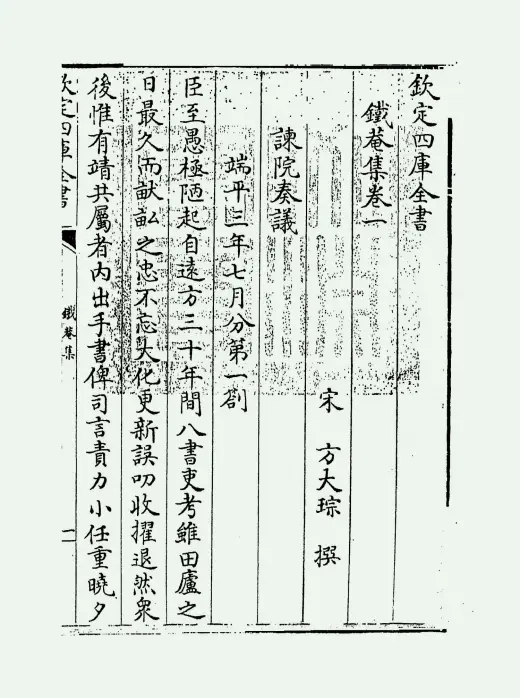 欽定四庫全書
鐵菴集卷一
宋 方大琮 撰
諫院奏議
端平三年七月分第一劄
臣至愚極陋起自遠方三十年間八書吏考雖田廬之
日最久而畎畝之忠不忘大化更新誤叨收擢退然衆
後惟有靖共屬者內出手書俾司言責力小任重曉夕
欽定四庫全書
鐵菴集
一